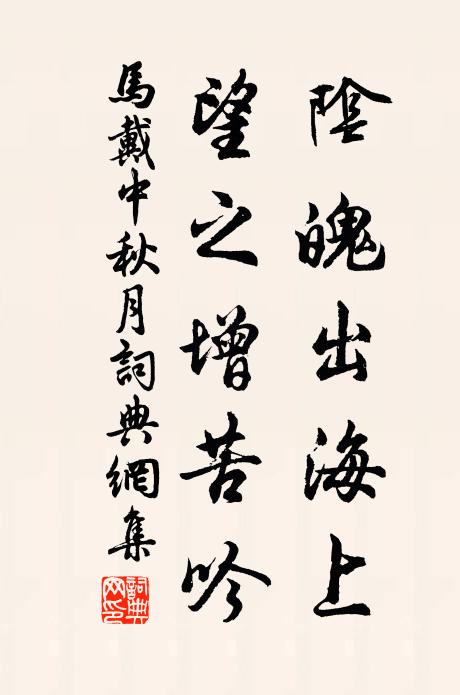 陰魄出海上
望之增苦吟
馬戴中秋月詞典網集
詞典
网印